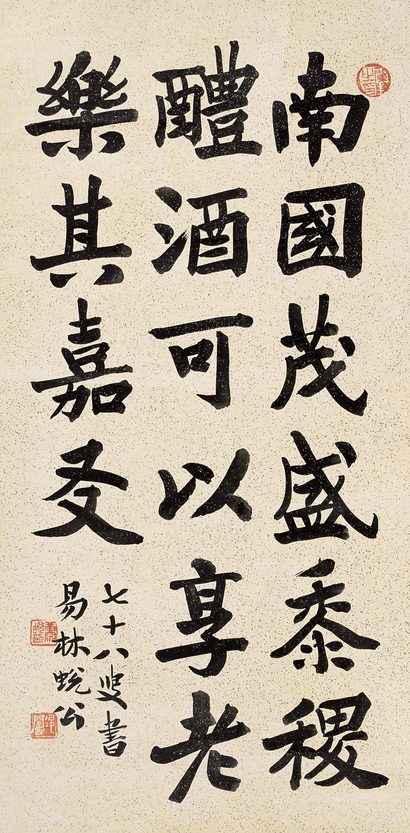 南國茂盛黍稷
醴酒可以享老
樂其嘉友
七十八叟書
易林蜕公